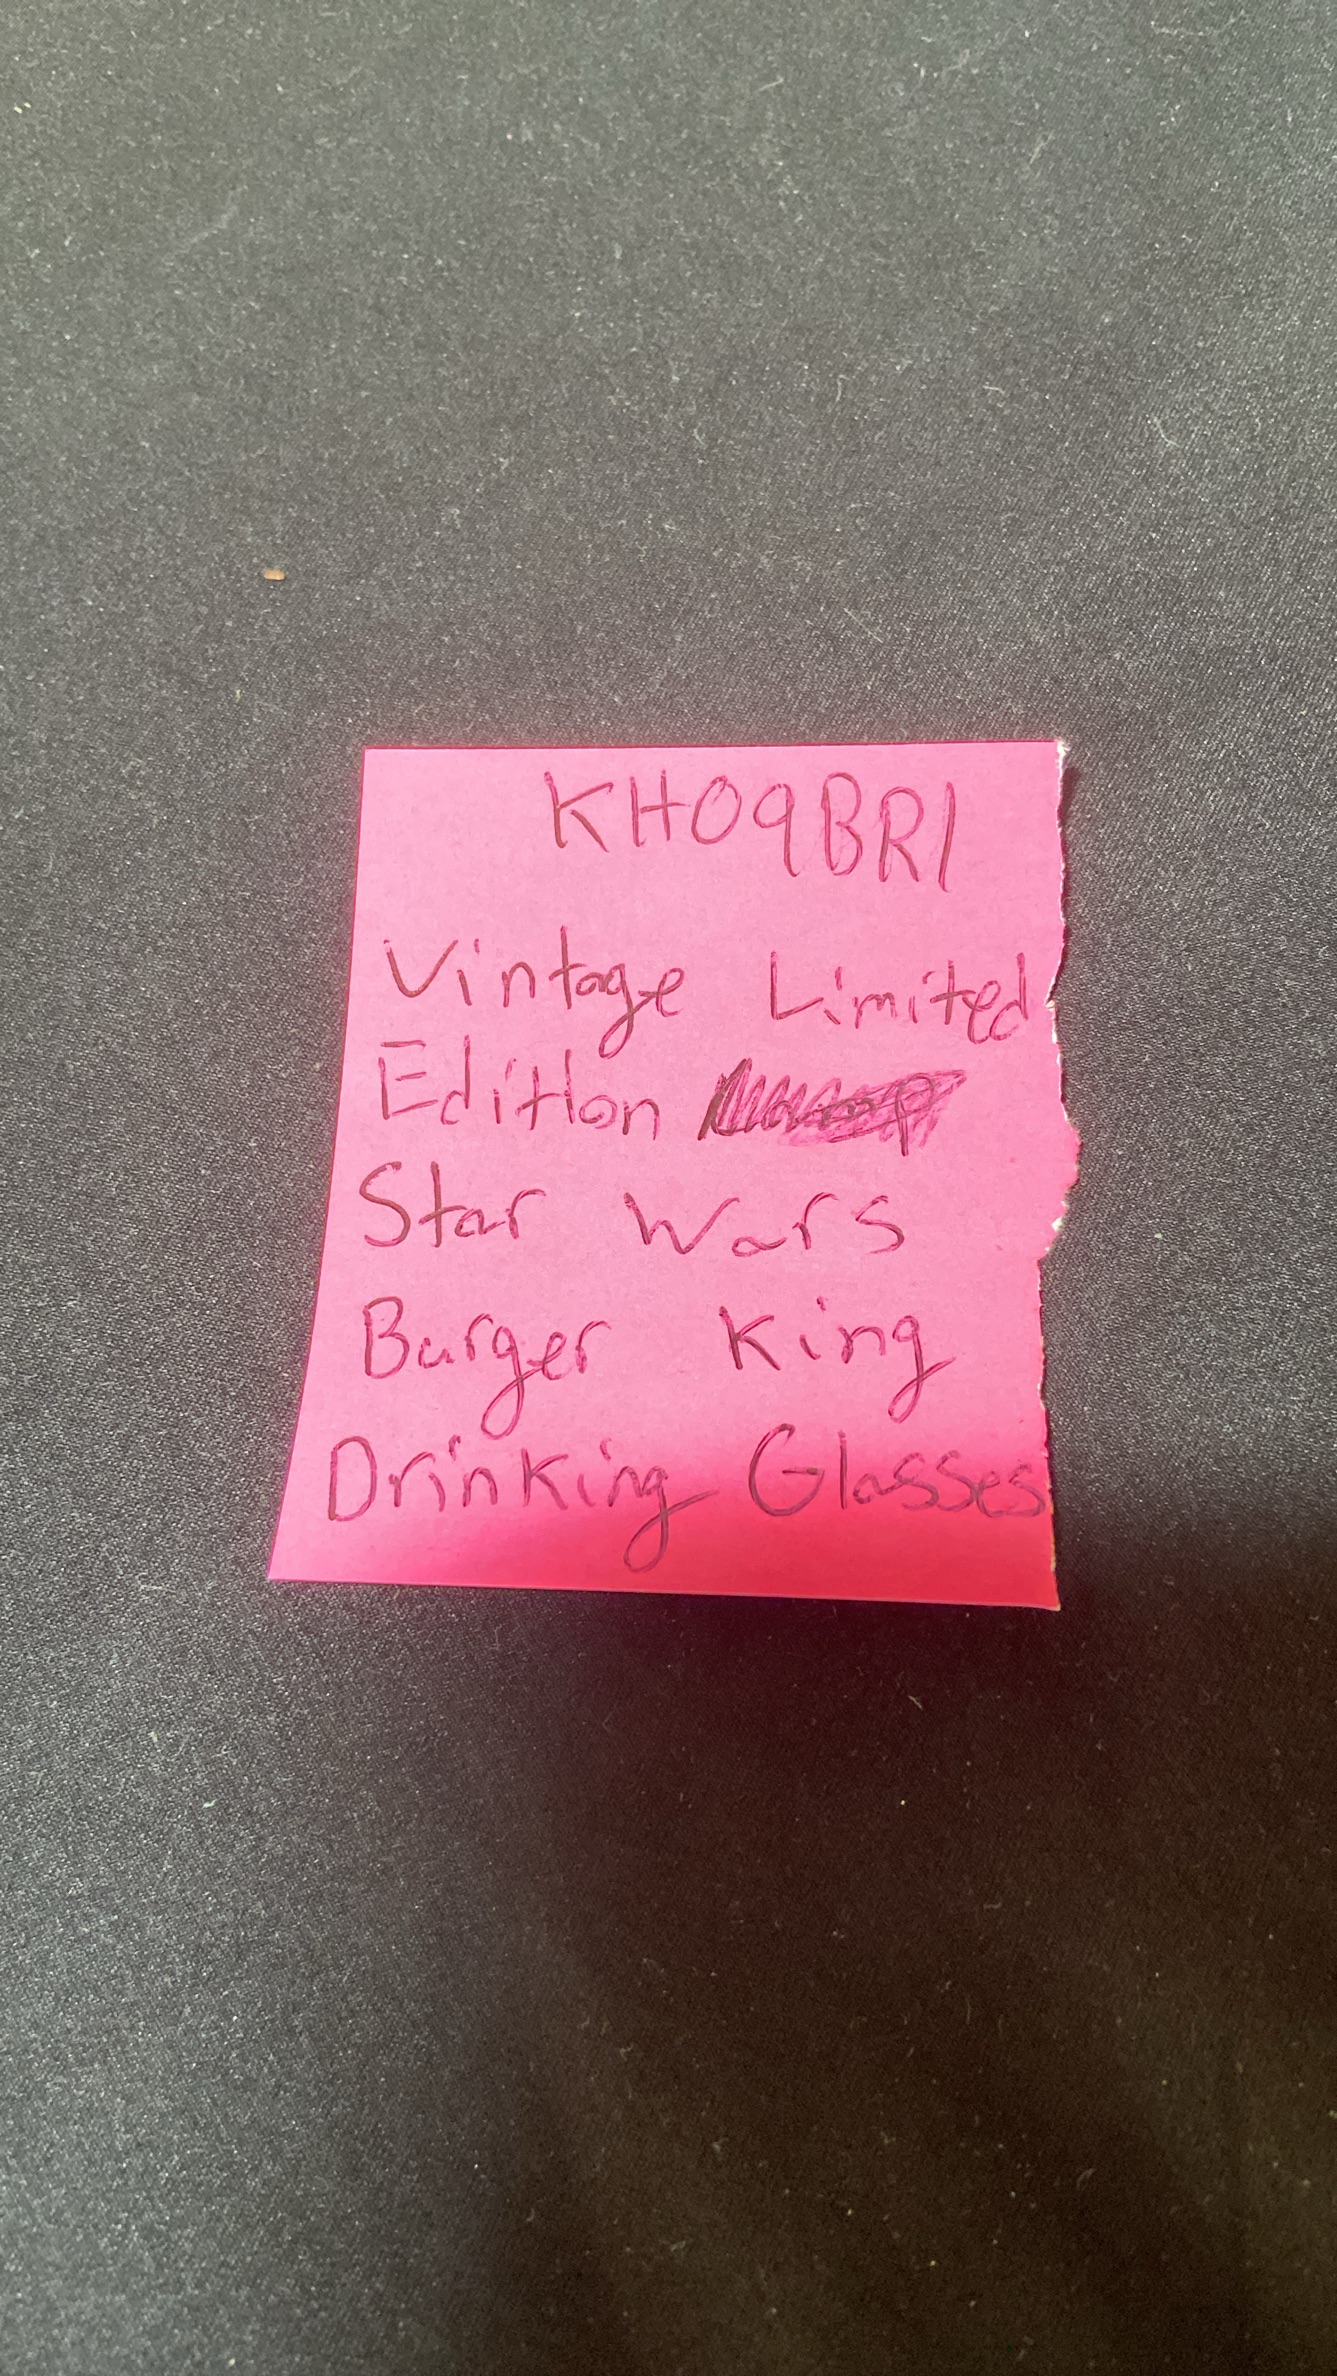 KH09BR1
Vintage Limited
Edition
Star Wars
Burger King
Drinking Glasses